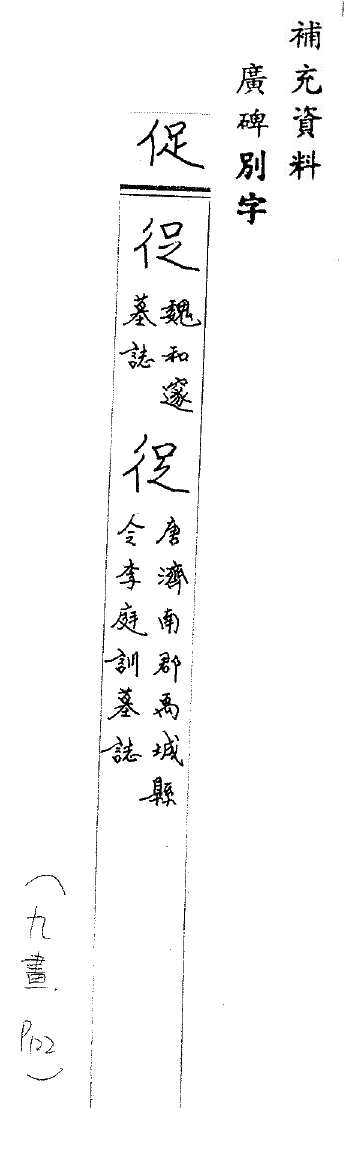 補充資料
廣碑別字
促
魏和邃
墓誌
唐濟南郡禹城縣
令李庭訓墓誌
(九畫. P122)